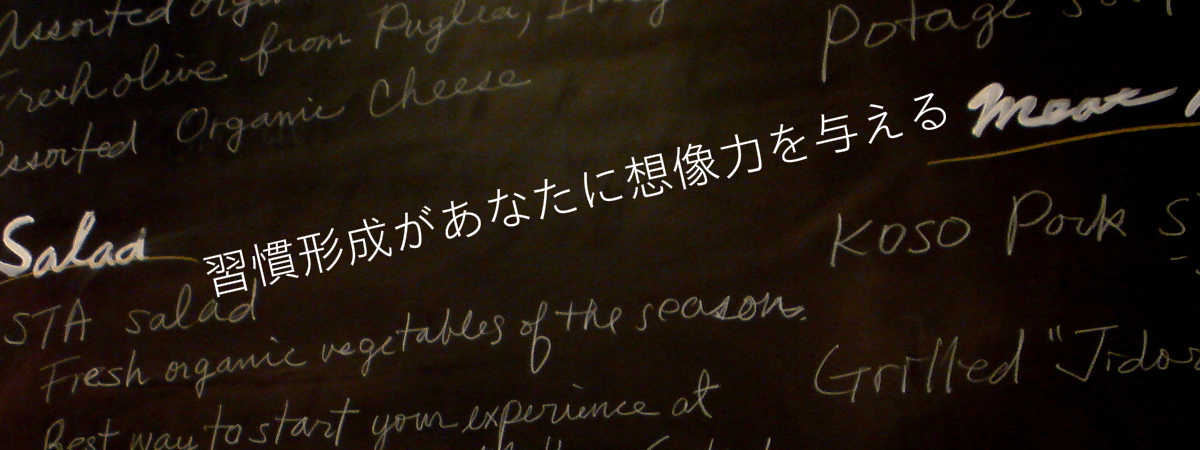 Assorted
Fresh olive from Puglia, Italy
Assorted Organic Cheese
Salad
STA salad
Fresh organic vegetables of the season.
Best way to start your experience at
習慣形成があなたに想像力を与える
Potage
Meat
Koso Pork
Grilled "Jidor